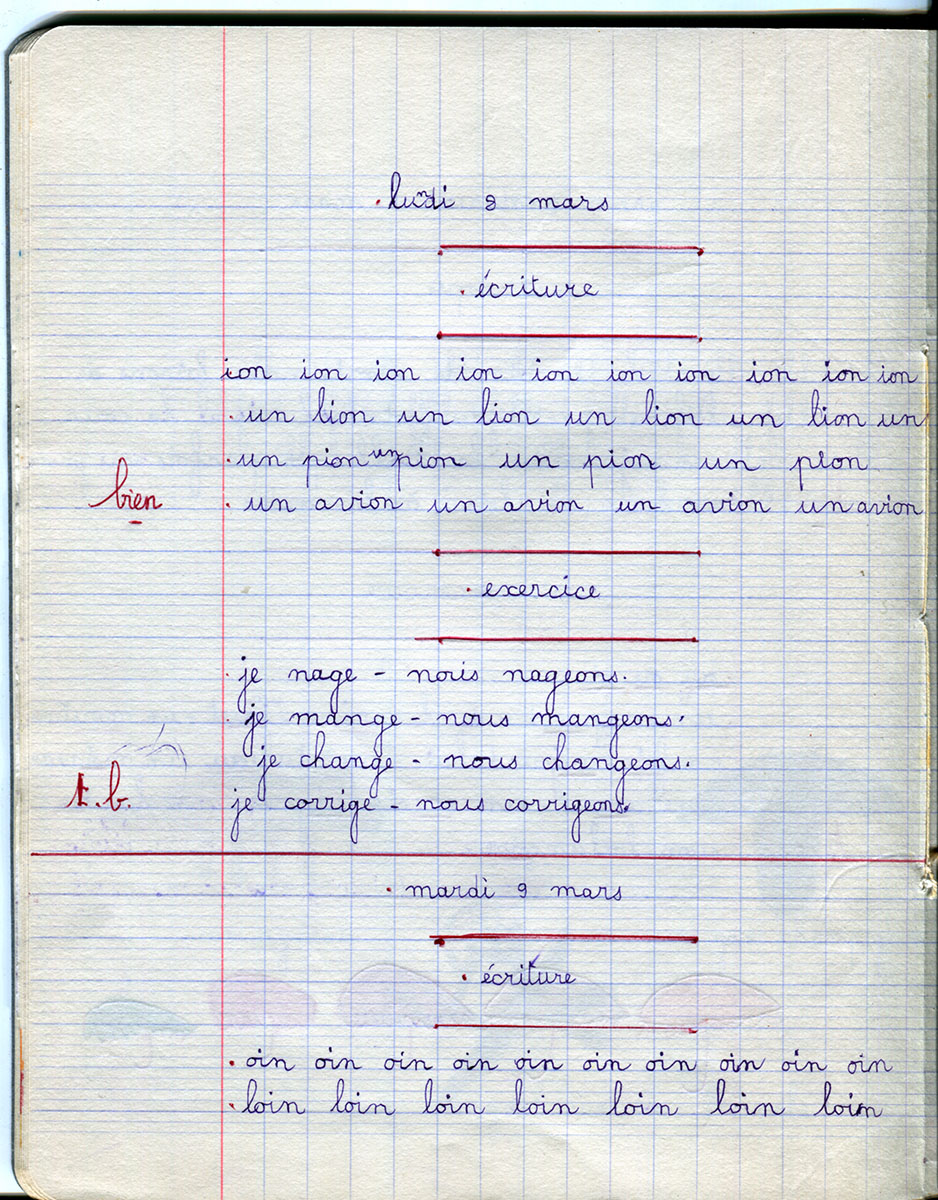 lundi 8 mars
écriture
ion ion ion ion ion ion ion ion ion ion
un lion un lion un lion un lion un
un pion un pion un pion un pion
bien
un avion un avion un avion un avion
exercice
je nage - nous nageons.
je mange - nous mangeons.
je change - nous changeons.
t.b.
je corrige - nous corrigeons.
mardi 9 mars
écriture
oin oin oin oin oin oin oin oin oin oin
loin loin loin loin loin loin loin